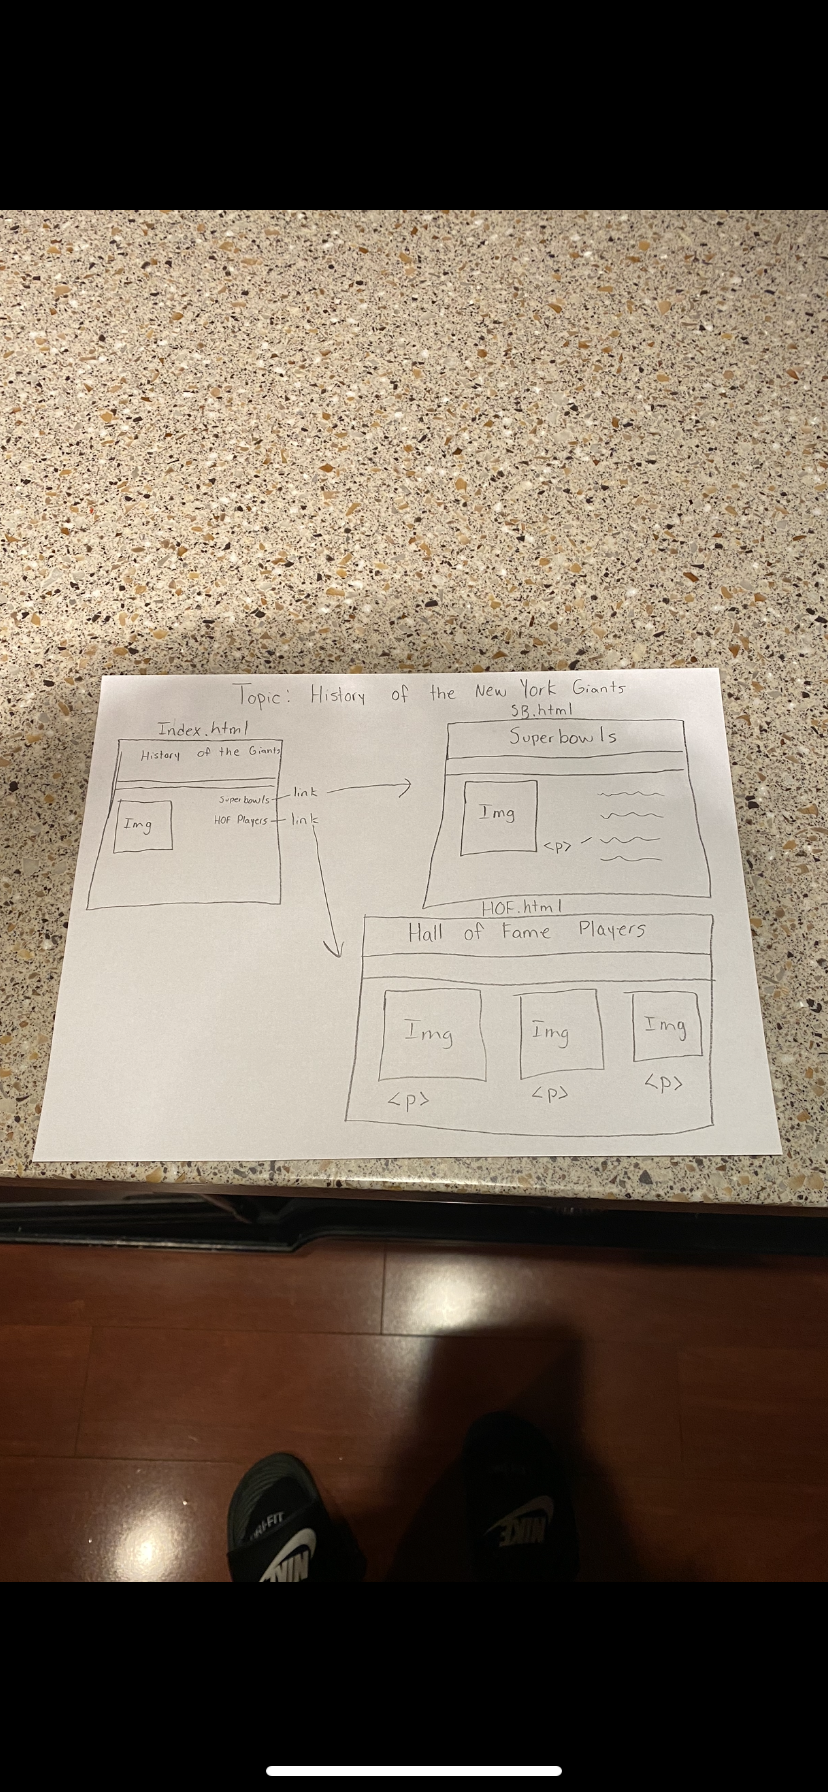 Topic: History of the New York Giants
Index.html
History of the Giants
Img
Superbowls
link
HOF Players
link
SB.html
Superbowls
Img
<p>
HOF.html
Hall of Fame Players
Img
Img
Img
<p>
<p>
<p>
NIKE